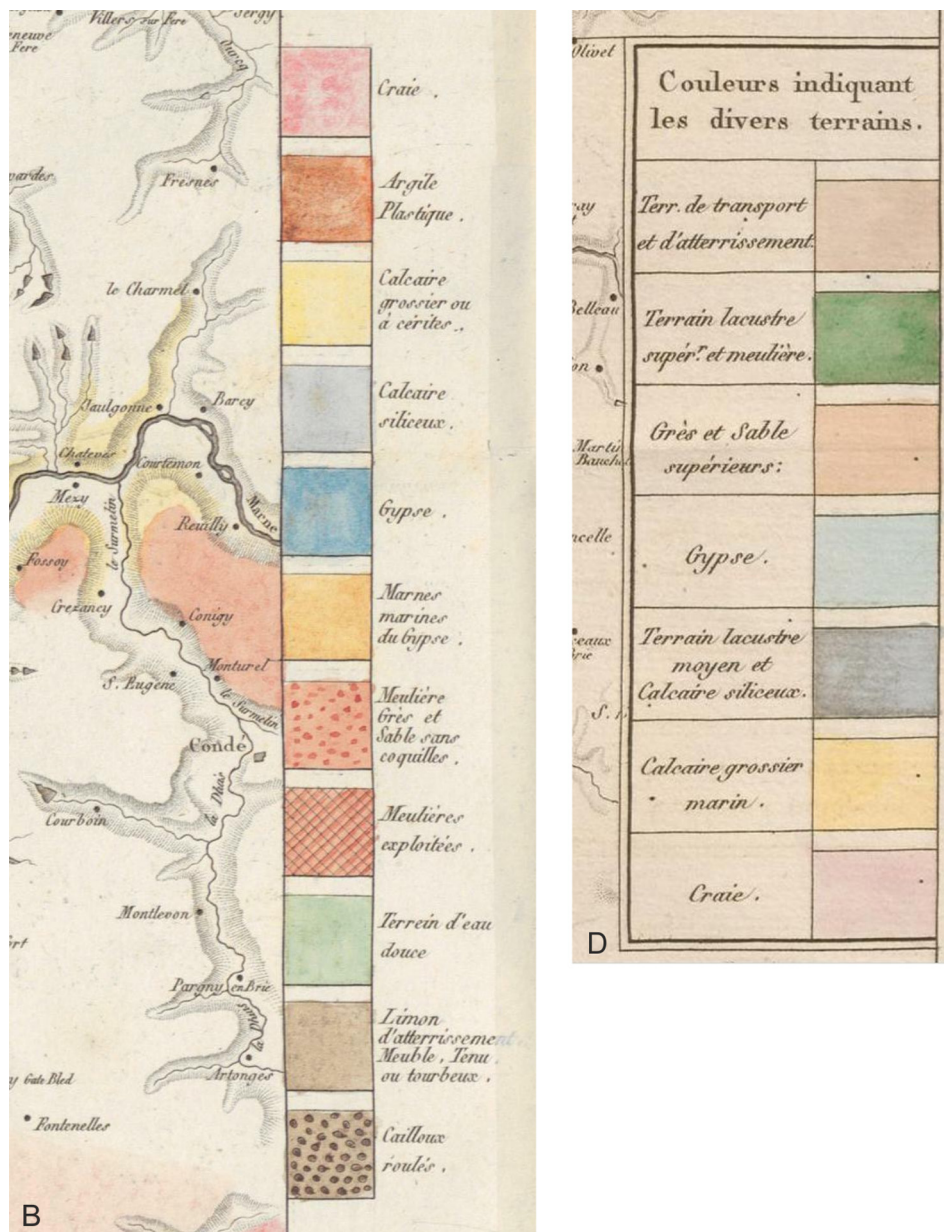 Villers sur Fere
Sergy
neuve
Fere
Ourcq
Fresnes
vardes
le Charmel
Jaulgonne
Barcy
Chateves
Courtemon
Mezy
Marne
le Surmelin
Reuilly
Fossoy
Crezancy
Conigy
Monturel
S. Eugene
le Surmelin
Conde
la Dhuis
Courboin
Montlevon
Pargny en Brie
Artonges
Gate Bled
Fontenelles
Craie.
Argile
Plastique.
Calcaire
grossier ou
à cérites.
Calcaire
siliceux.
Gypse.
Marnes
marines
du Gypse.
Meulière
Grès et
Sable sans
coquilles.
Meulières
exploitées.
Terrein d'eau
douce
Limon
d'atterrissement
Meuble, Tenu
ou tourbeux.
Cailloux
roulés.
B
Olivet
ray
Belleau
on
Martin
Bauchet
ncelle
ceaux
Brie
Couleurs indiquant
les divers terrains.
Terr. de transport
et d'atterrissement.
Terrain lacustre
supér.r et meulière.
Grès et Sable
supérieurs:
Gypse.
Terrain lacustre
moyen et
Calcaire siliceux.
Calcaire grossier
marin.
Craie.
D